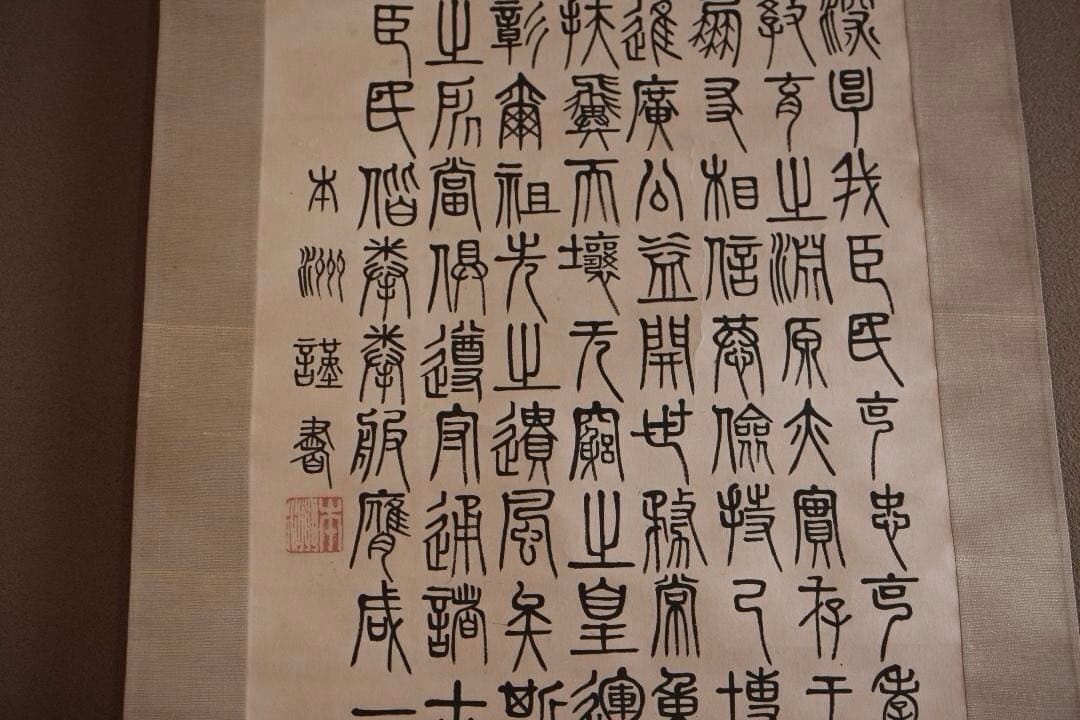 深厚我臣民克忠克孝
教育之淵原亦實存于
朋友相信恭儉持己博
進廣公益開世務常重
扶翼天壤无窮之皇運
彰爾祖先之遺風矣斯
之所當俱遵守通諸古
臣民偕拳拳服膺咸一
本洲謹書
本洲